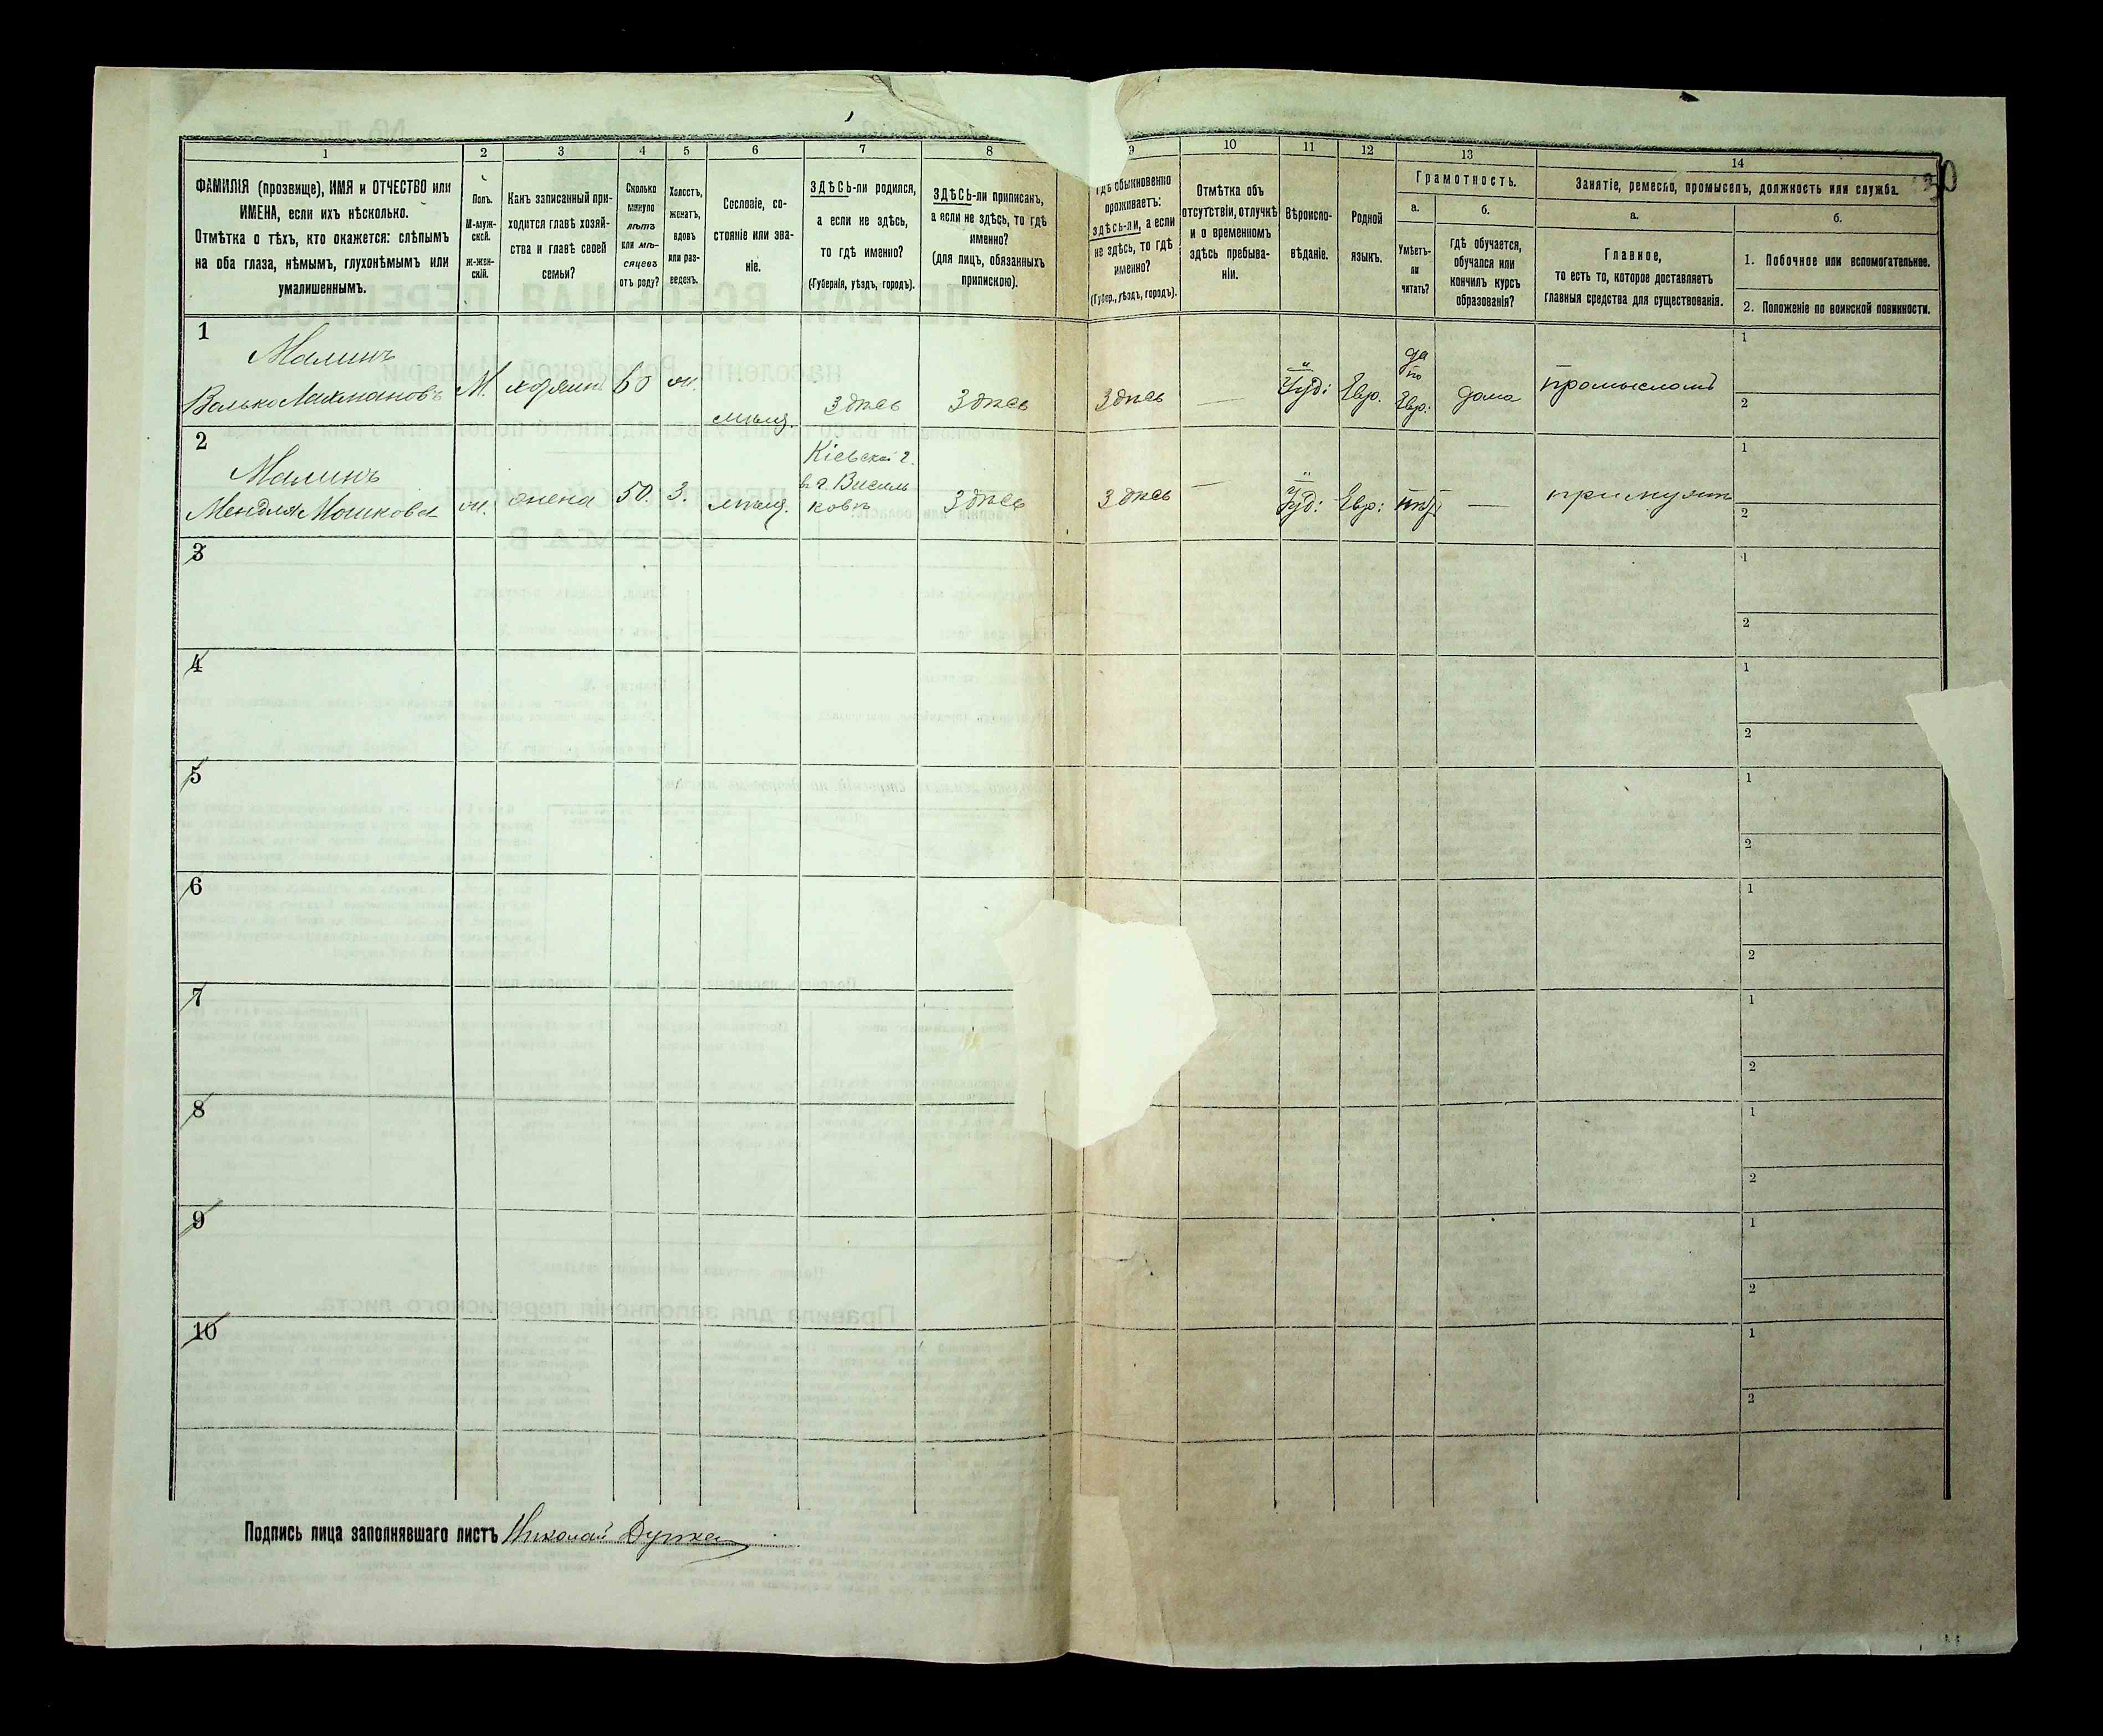 1 2 3 4 5 6 7 8 9 10 11 12 13 14
ФАМИЛІЯ (прозвище), ИМЯ и ОТЧЕСТВО или
ИМЕНА, если ихъ нѣсколько.
Отмѣтка о тѣхъ, кто окажется: слѣпымъ
на оба глаза, нѣмымъ, глухонѣмымъ или
умалишеннымъ.
Полъ.
М-муж-
ской.
Ж-жен-
скій.
Какъ записанный при-
ходится главѣ хозяй-
ства и главѣ своей
семьи?
Сколько
минуло
лѣтъ
или мѣ-
сяцевъ
отъ роду?
Холостъ,
женатъ,
вдовъ
или раз-
веденъ.
Сословіе, со-
стояніе или зва-
ніе.
ЗДѢСЬ-ли родился,
а если не здѣсь,
то гдѣ именно?
(Губернія, уѣздъ, городъ).
ЗДѢСЬ-ли приписанъ,
а если не здѣсь, то гдѣ
именно?
(для лицъ, обязанныхъ
припискою).
обыкновенно
проживаетъ:
здѣсь-ли, а если
не здѣсь, то гдѣ
именно?
(Губер., уѣздъ, городъ).
Отмѣтка объ
отсутствіи, отлучкѣ
и о временномъ
здѣсь пребыва-
ніи.
Вѣроиспо-
вѣданіе.
Родной
языкъ.
Грамотность.
а.
Умѣетъ-
ли
читать?
б.
гдѣ обучается,
обучался или
кончилъ курсъ
образованія?
Занятіе, ремесло, промыселъ, должность или служба.
а.
Главное,
то есть то, которое доставляетъ
главныя средства для существованія.
б.
1. Побочное или вспомогательное.
2. Положеніе по воинской повинности.
30
1
Малинъ
Волько Лахмановъ
М.
хозяинъ
60
ж.
мѣщ.
Здѣсь
Здѣсь
Здѣсь
—
Іуд:
Евр.
да
по
Евр:
дома
промысломъ
1
2
2
Малинъ
Мендля Мошкова
ж.
жена
50.
З.
мѣщ.
Кіевской г.
в. г. Василь
ковѣ
Здѣсь
Здѣсь
—
Іуд:
Евр:
нѣтъ
—
при мужѣ
1
2
3
1
2
4
1
2
5
1
2
6
1
2
7
1
2
8
1
2
9
1
2
10
1
2
Подпись лица заполнявшаго листъ Николай